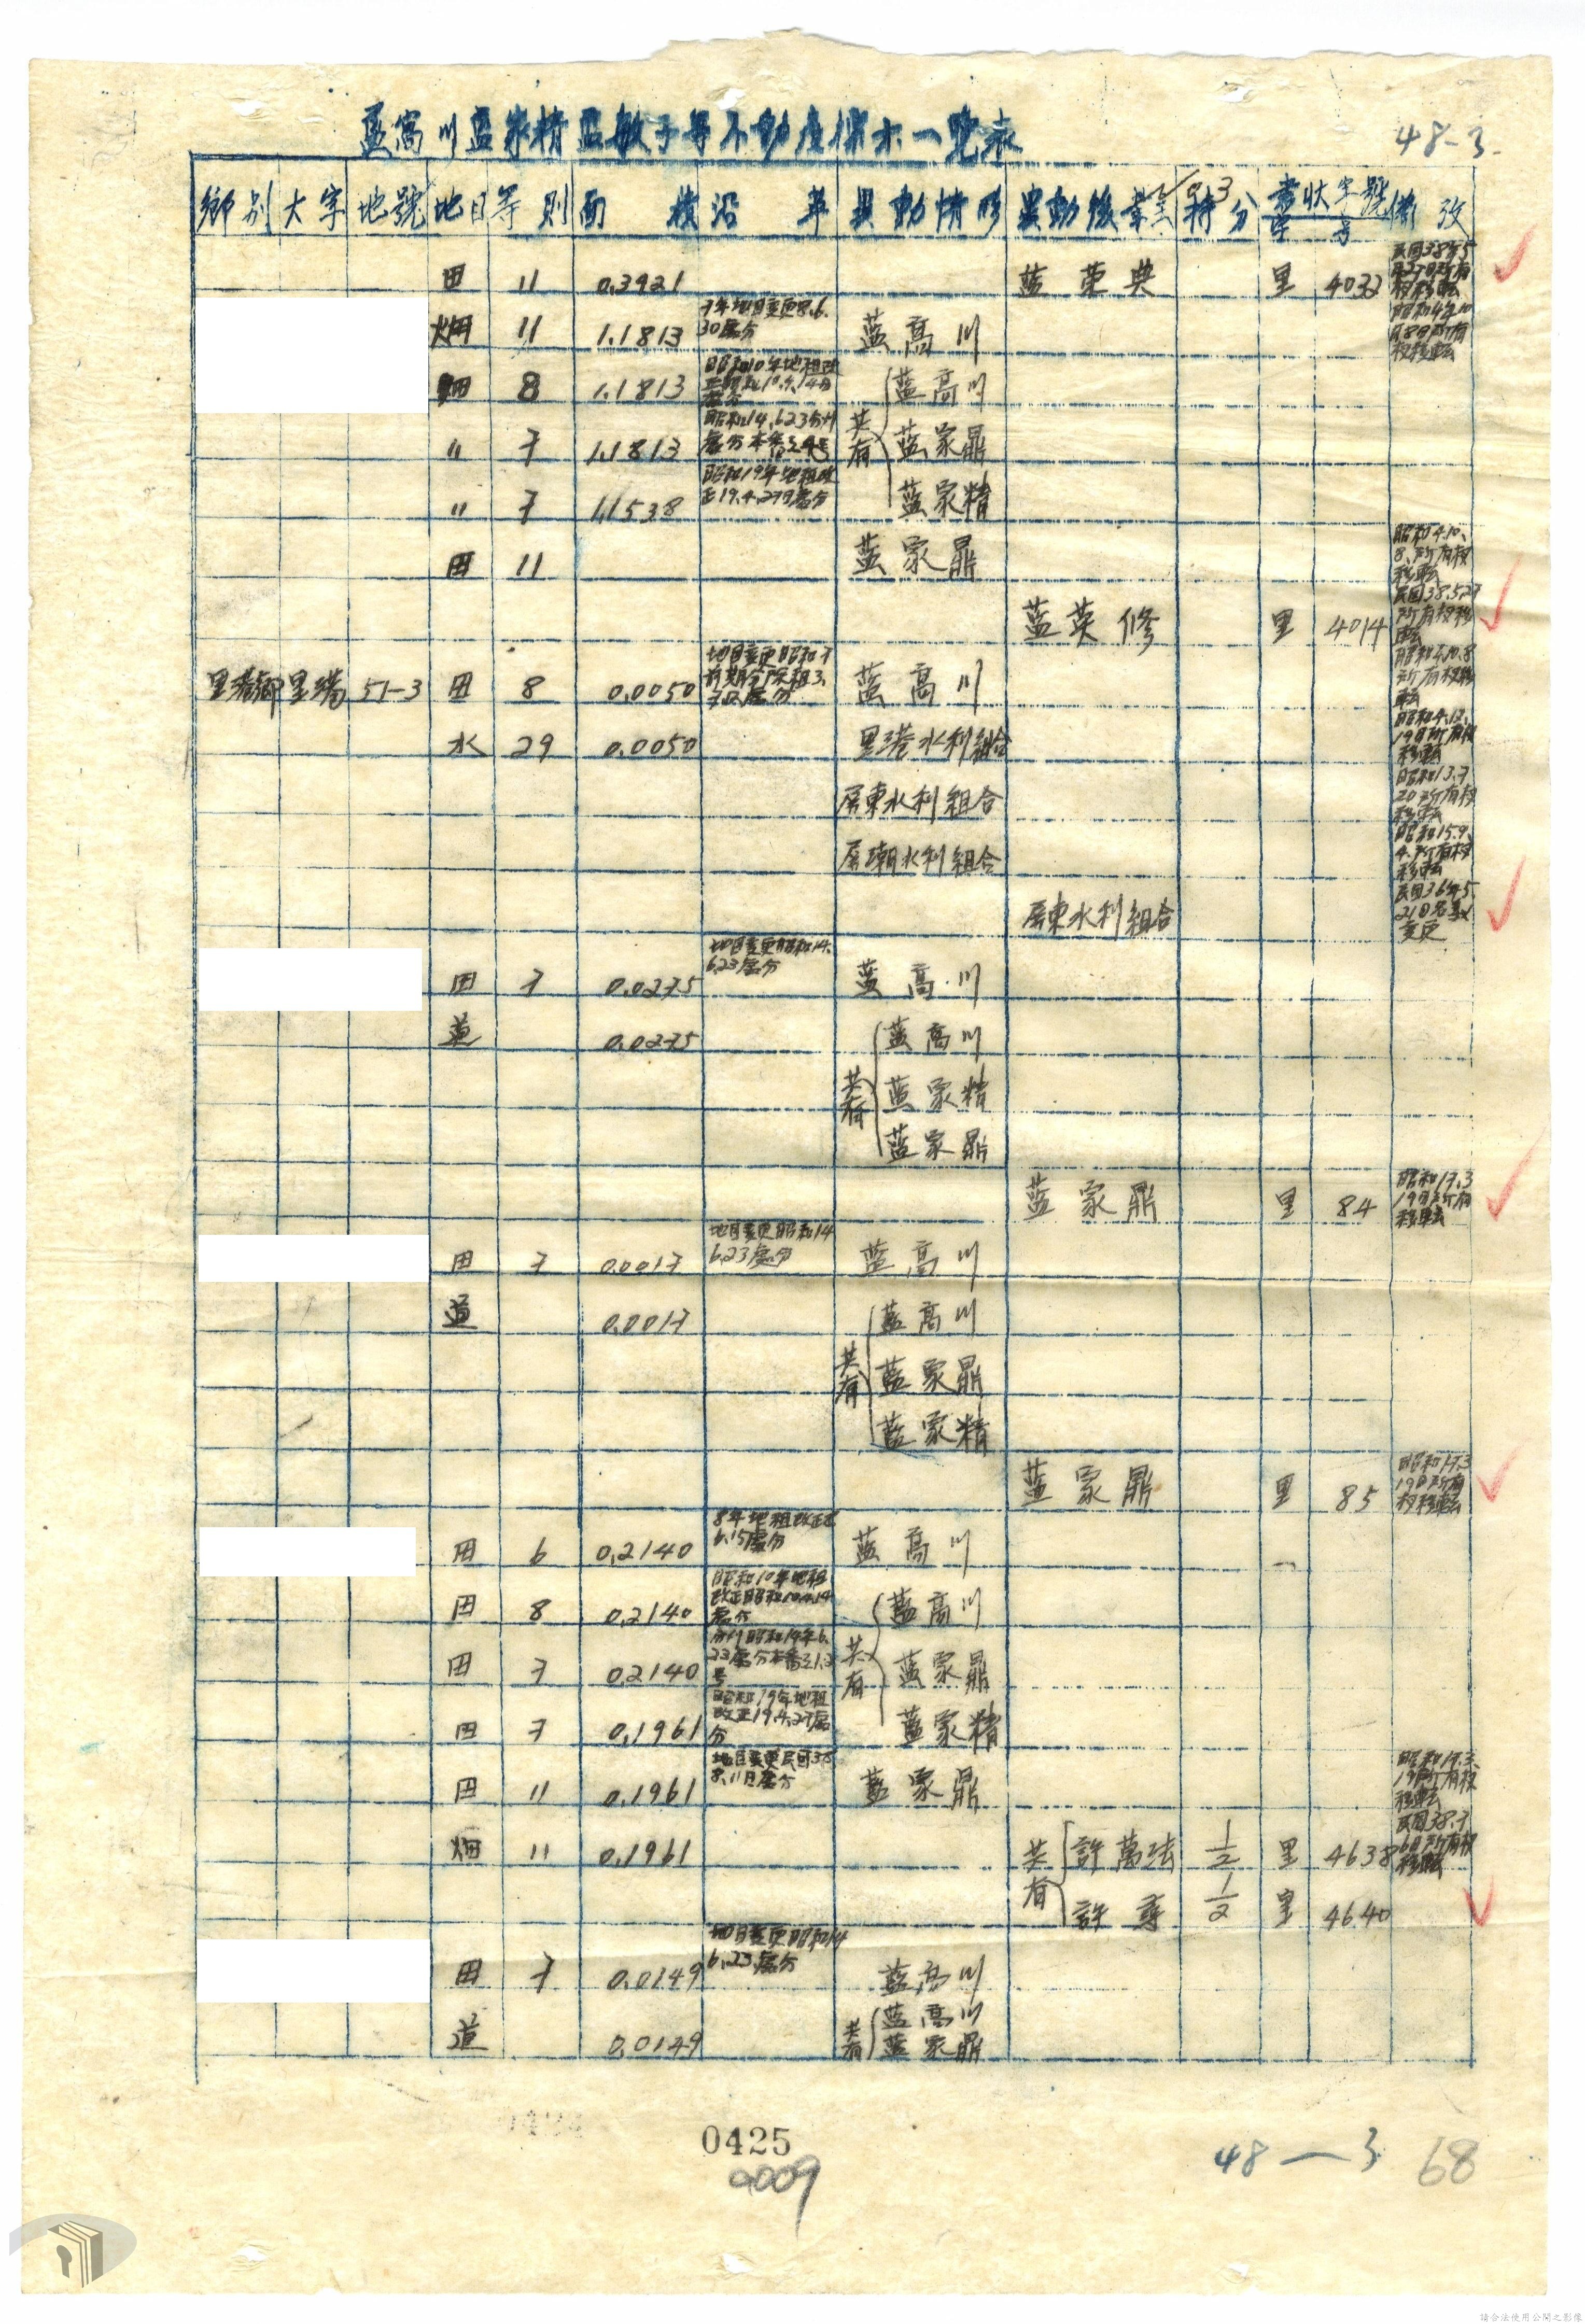 藍高川藍家精藍敏子等不動產標示一覽表
48-3.
鄉別 大字 地號 地目 等則 面積 沿革 異動情形 異動後業主 持分 書狀字號 備攷
3
字 號
田 11 0.3921 藍榮典 里 4033 民國38年5月27日所有權移轉
畑 11 1.1813 7年地目變更8.6.30處分 藍高川 昭和4年10月8日所有權移転
畑 8 1.1813 昭和10年地租改正昭和10.4.14處分 共有 藍高川
〃 7 1.1813 昭和14.6.23分割處分本番之4号 藍家鼎
〃 7 1.1538 昭和19年地租改正19.4.27日處分 藍家精
田 11 藍家鼎 昭和4.10.8.所有权移転
藍英修 里 4014 民國38.5.27所有权移転
里港鄉 里港 51-3 田 8 0.0050 藍高川 昭和4.10.8所有权移転
水 29 0.0050 里港水利組合 昭和4.12.19日所有权移転
屏東水利組合 昭和13.7.20所有权移転
屏潮水利組合 昭和15.9.4.所有权移転
屏東水利組合 民國36年5.21日名義变更
田 7 0.0275 地目変更昭和14.6.23處分 藍高川
道 0.0275 共有 藍高川
藍家精
藍家鼎
藍家鼎 里 84 昭和17.3.19日所有移転
田 7 0.0017 地目変更昭和14.6.23處分 藍高川
道 0.0017 共有 藍高川
藍家鼎
藍家精
藍家鼎 里 85 昭和17.3.19日所有权移転
田 6 0.2140 8年地租改正8.6.15處分 藍高川
田 8 0.2140 昭和10年地租改正昭和10.4.14處分 共有 藍高川
田 7 0.2140 分割昭和14年6.23處分本番之1.2号 藍家鼎
田 7 0.1961 昭和19年地租改正19.4.27處分 藍家精
田 11 0.1961 地目変更民國38.8.11日處分 藍家鼎 昭和17.3.19所有权移転
畑 11 0.1961 共有 許萬法 1/2 里 4638 民國38.7.6日所有权移転
許尋 1/2 里 4640
田 7 0.0149 地目変更昭和14.6.23.處分 藍高川
道 0.0149 共有 藍高川
藍家鼎
0425
0009
48—3
68
請合法使用公開之影像